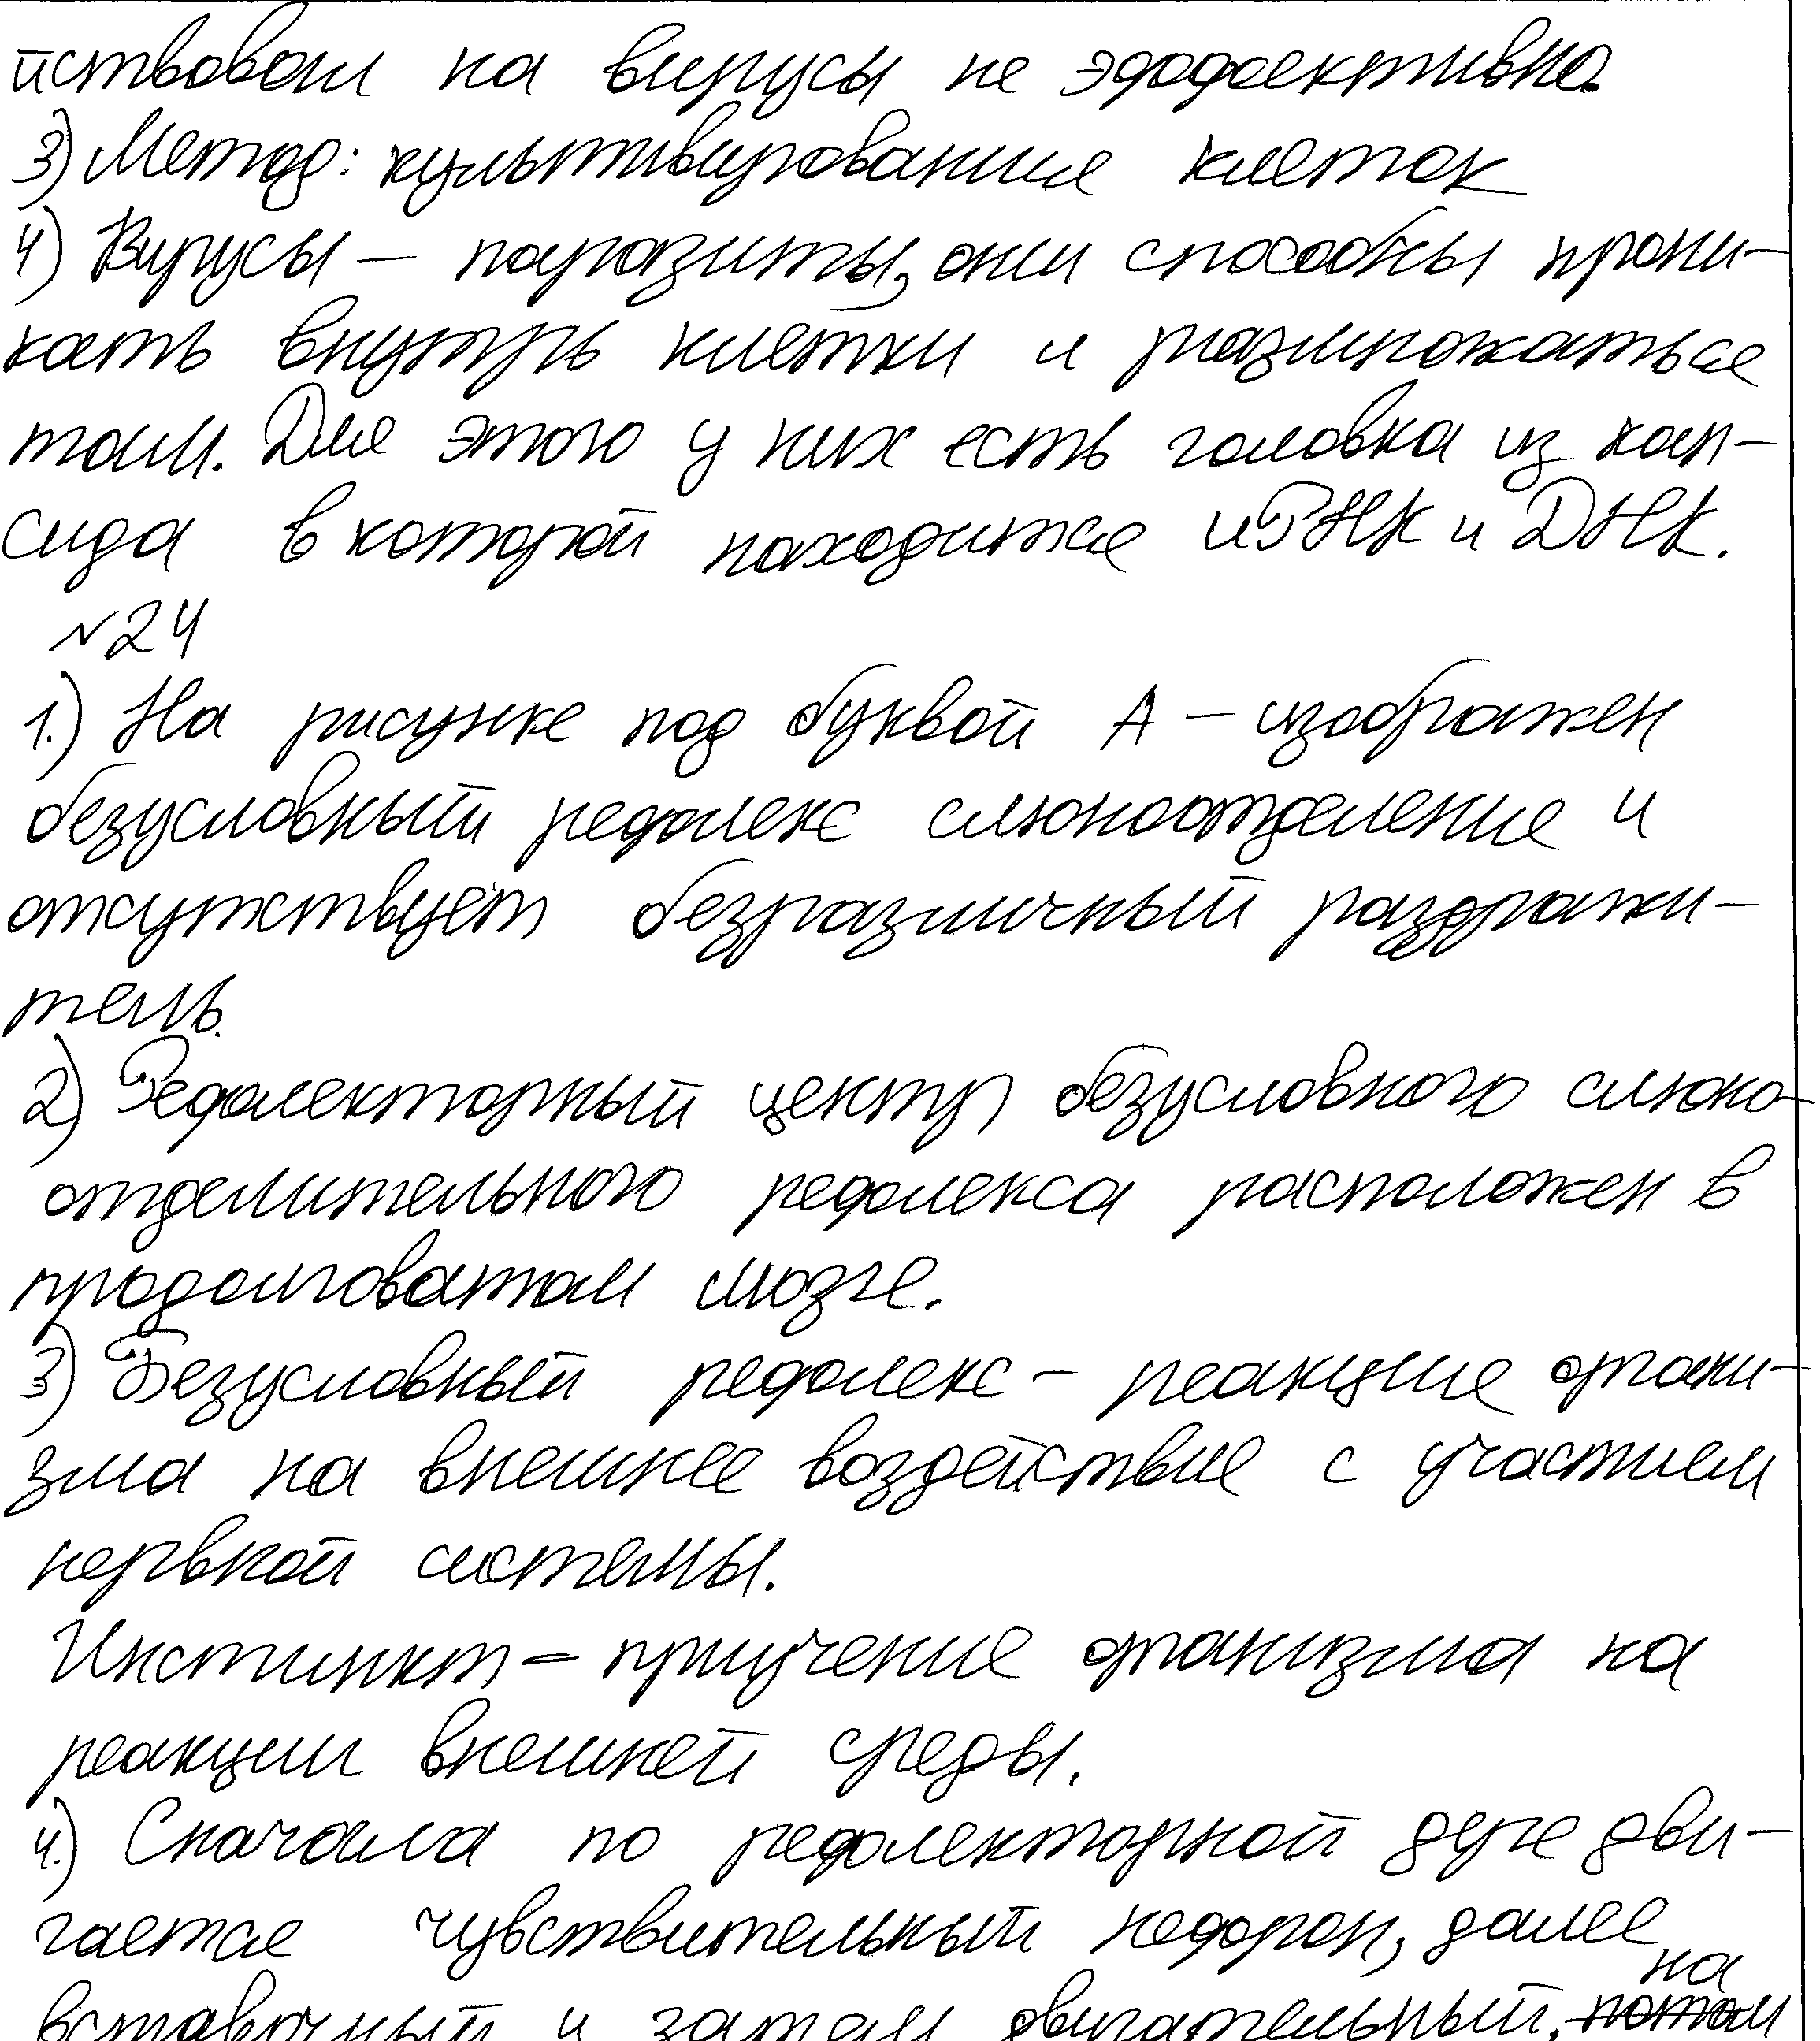 йствовали на вирусы не эффективно.
3) Метод: культивирование клеток
4) Вирусы – паразиты, они способны прони-
кать внутрь клетки и размножаться
там. Для этого у них есть головка из кап-
сида в которой находится иРНК и ДНК.
№24
1.) На рисунке под буквой А – изображен
безусловный рефлекс слюноотделение и
отсутствует безразличный раздражи-
тель.
2) Рефлекторный центр безусловного слюно-
отделительного рефлекса расположен в
продолговатом мозге.
3) Безусловный рефлекс – реакция органи-
зма на внешнее воздействие с участием
нервной системы.
Инстинкт – приучение организма на
реакции внешней среды.
4.) Сначала по рефлекторной дуге дви-
гается чувствительный нефрон, далее
на
вставочный и затем двигательный, потом